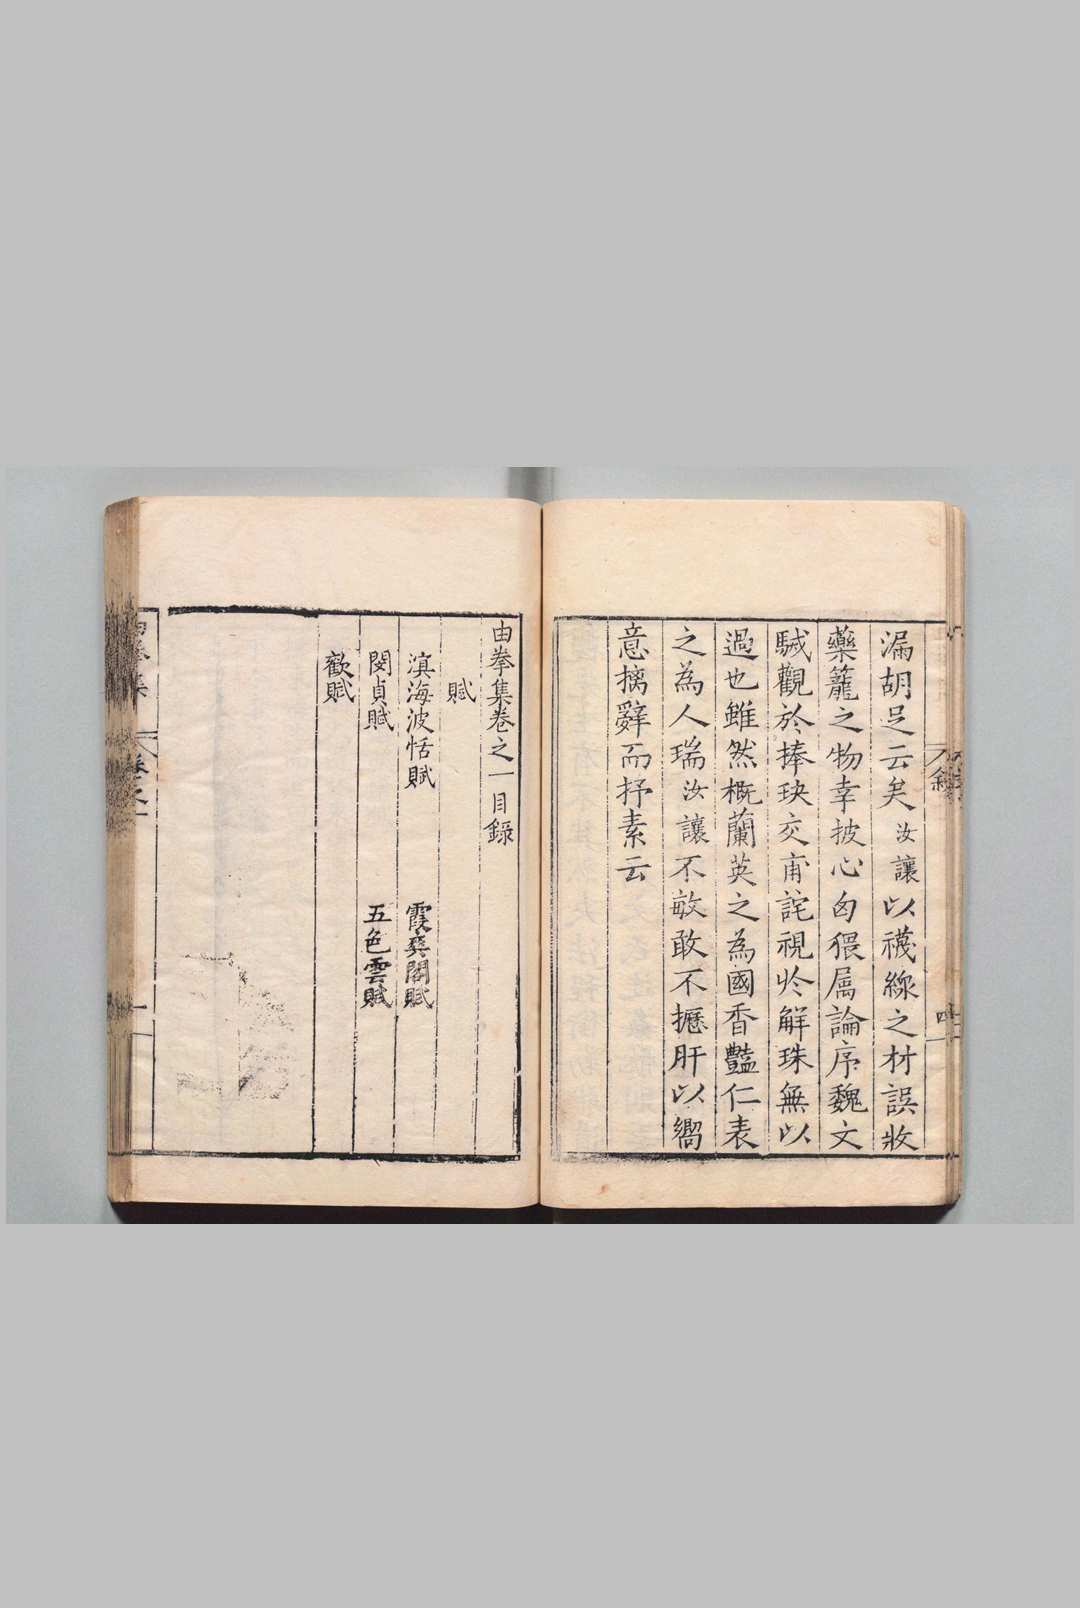 漏胡足云矣汝讓以襪線之材誤收
藥籠之物幸披心匈猥属論序魏文
駴觀於捧玦交甫詫視於解珠無以
過也雖然概蘭英之為國香豔仁表
之為人瑞汝讓不敏敢不攄肝以嚮
意摛辭而抒素云
由拳集卷之一目錄
賦
滇海波恬賦 霞爽閣賦
閔貞賦 五色雲賦
歡賦